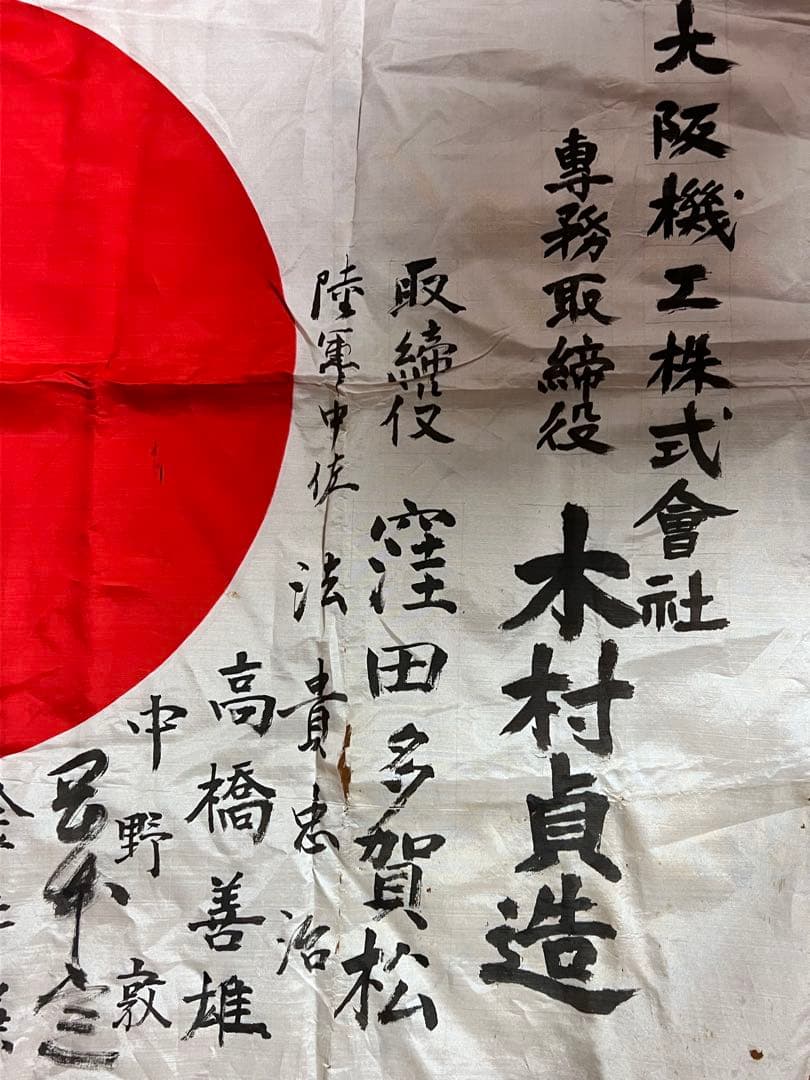 大阪機工株式會社
専務取締役 木村貞造
取締役 窪田多賀松
陸軍中佐 法貴忠治
高橋善雄
中野敦